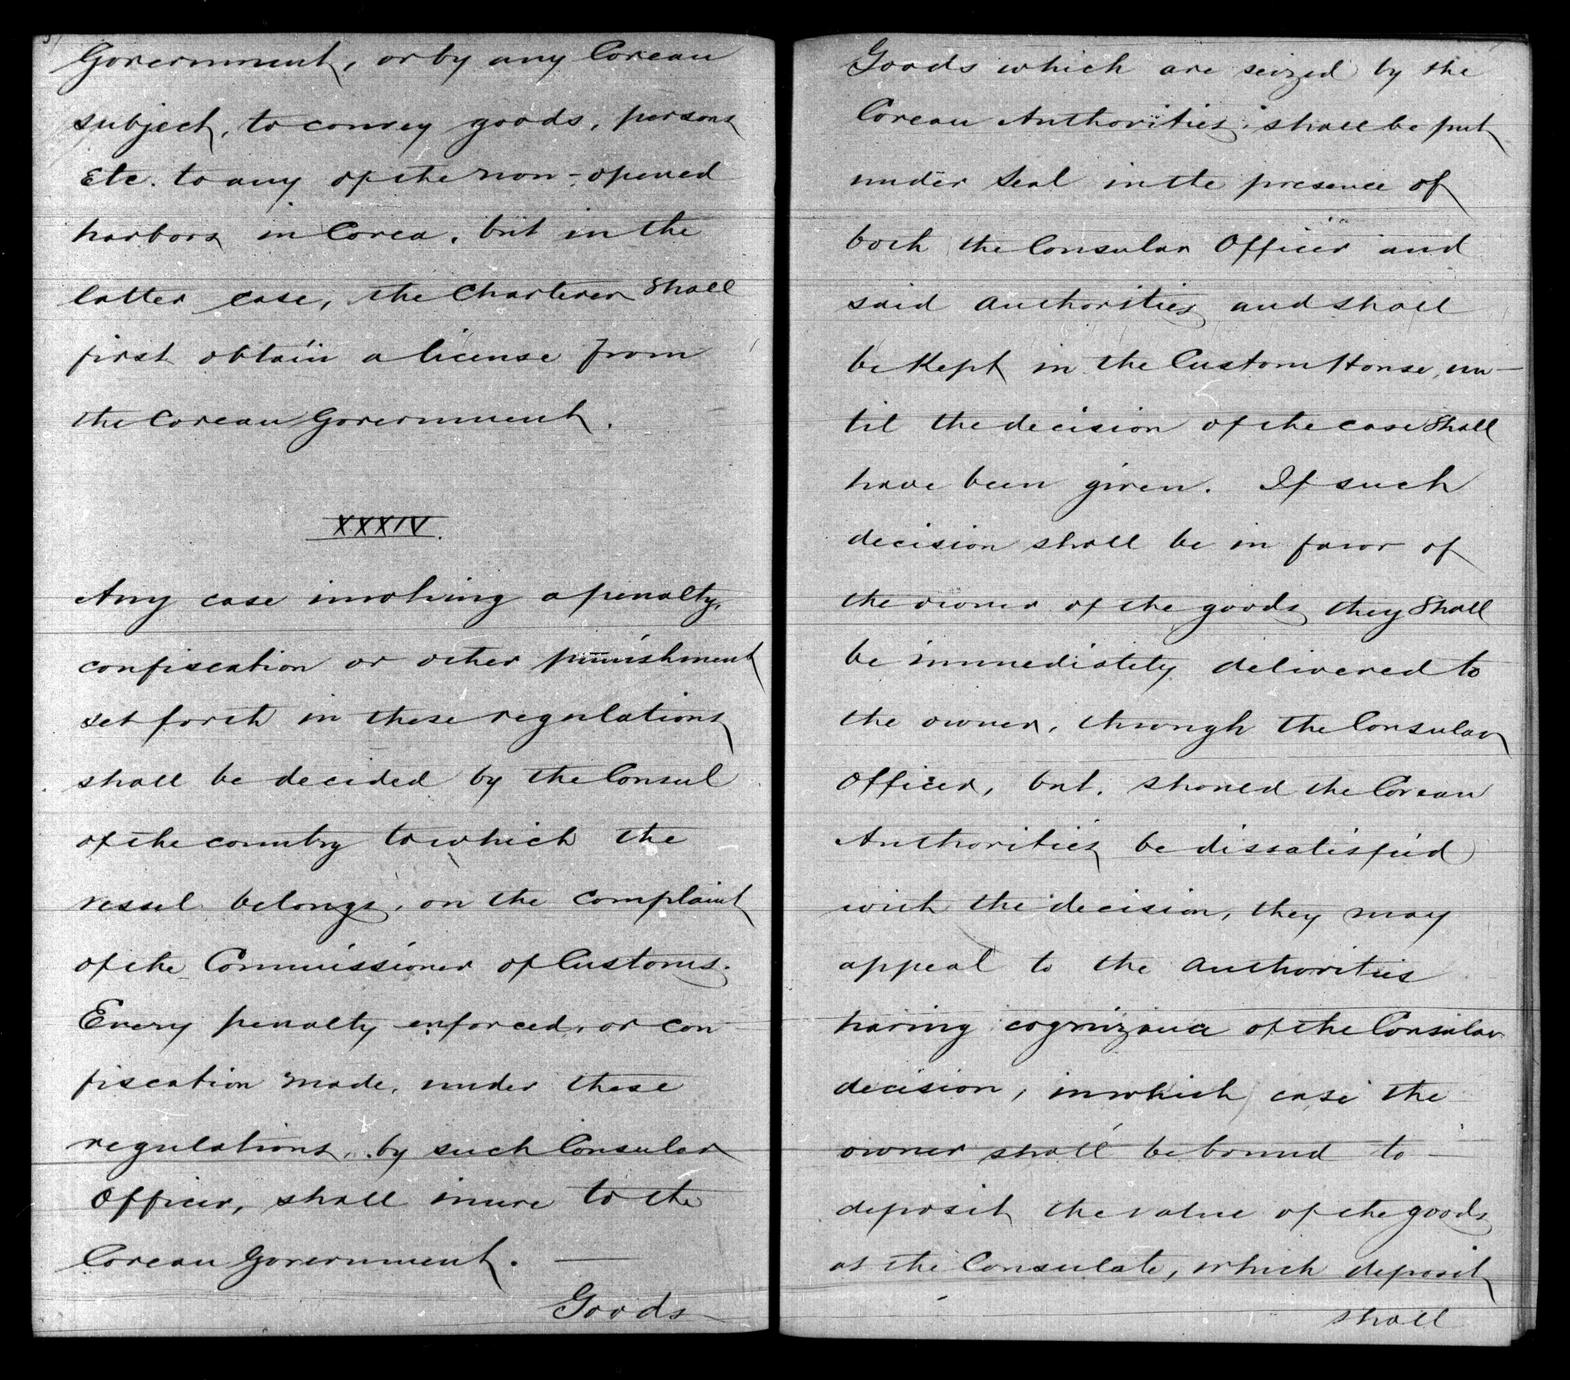 Government, or by any Corean
subject, to convey goods, persons
Etc. to any of the non-opened
harbors in Corea, but in the
latter case, the Charterer Shall
first obtain a license from
the Corean Government.
XXXIV.
Any case involving a penalty,
confiscation or other punishment
set forth in these regulations
shall be decided by the Consul
of the country to which the
vessel belongs, on the complaint
of the Commissioner of Customs.
Every penalty enforced, or con
fiscation made, under these
regulations, by such Consular
Officer, shall inure to the
Corean Government. —
Goods
Goods which are seized by the
Corean Authorities, shall be put
under Seal in the presence of
both the Consular Officer and
said Authorities and shall
be Kept in the Custom House, un-
til the decision of the case Shall
have been given. If such
decision shall be in favor of
the owner of the goods they Shall
be immediately delivered to
the owner, through the Consular
Officer, but, should the Corean
Authorities be dissatisfied
with the decision, they may
appeal to the Authorities
having cognizance of the Consular
decision, in which case the
owner shall be bound to
deposit the value of the goods
at the Consulate, which deposit
shall